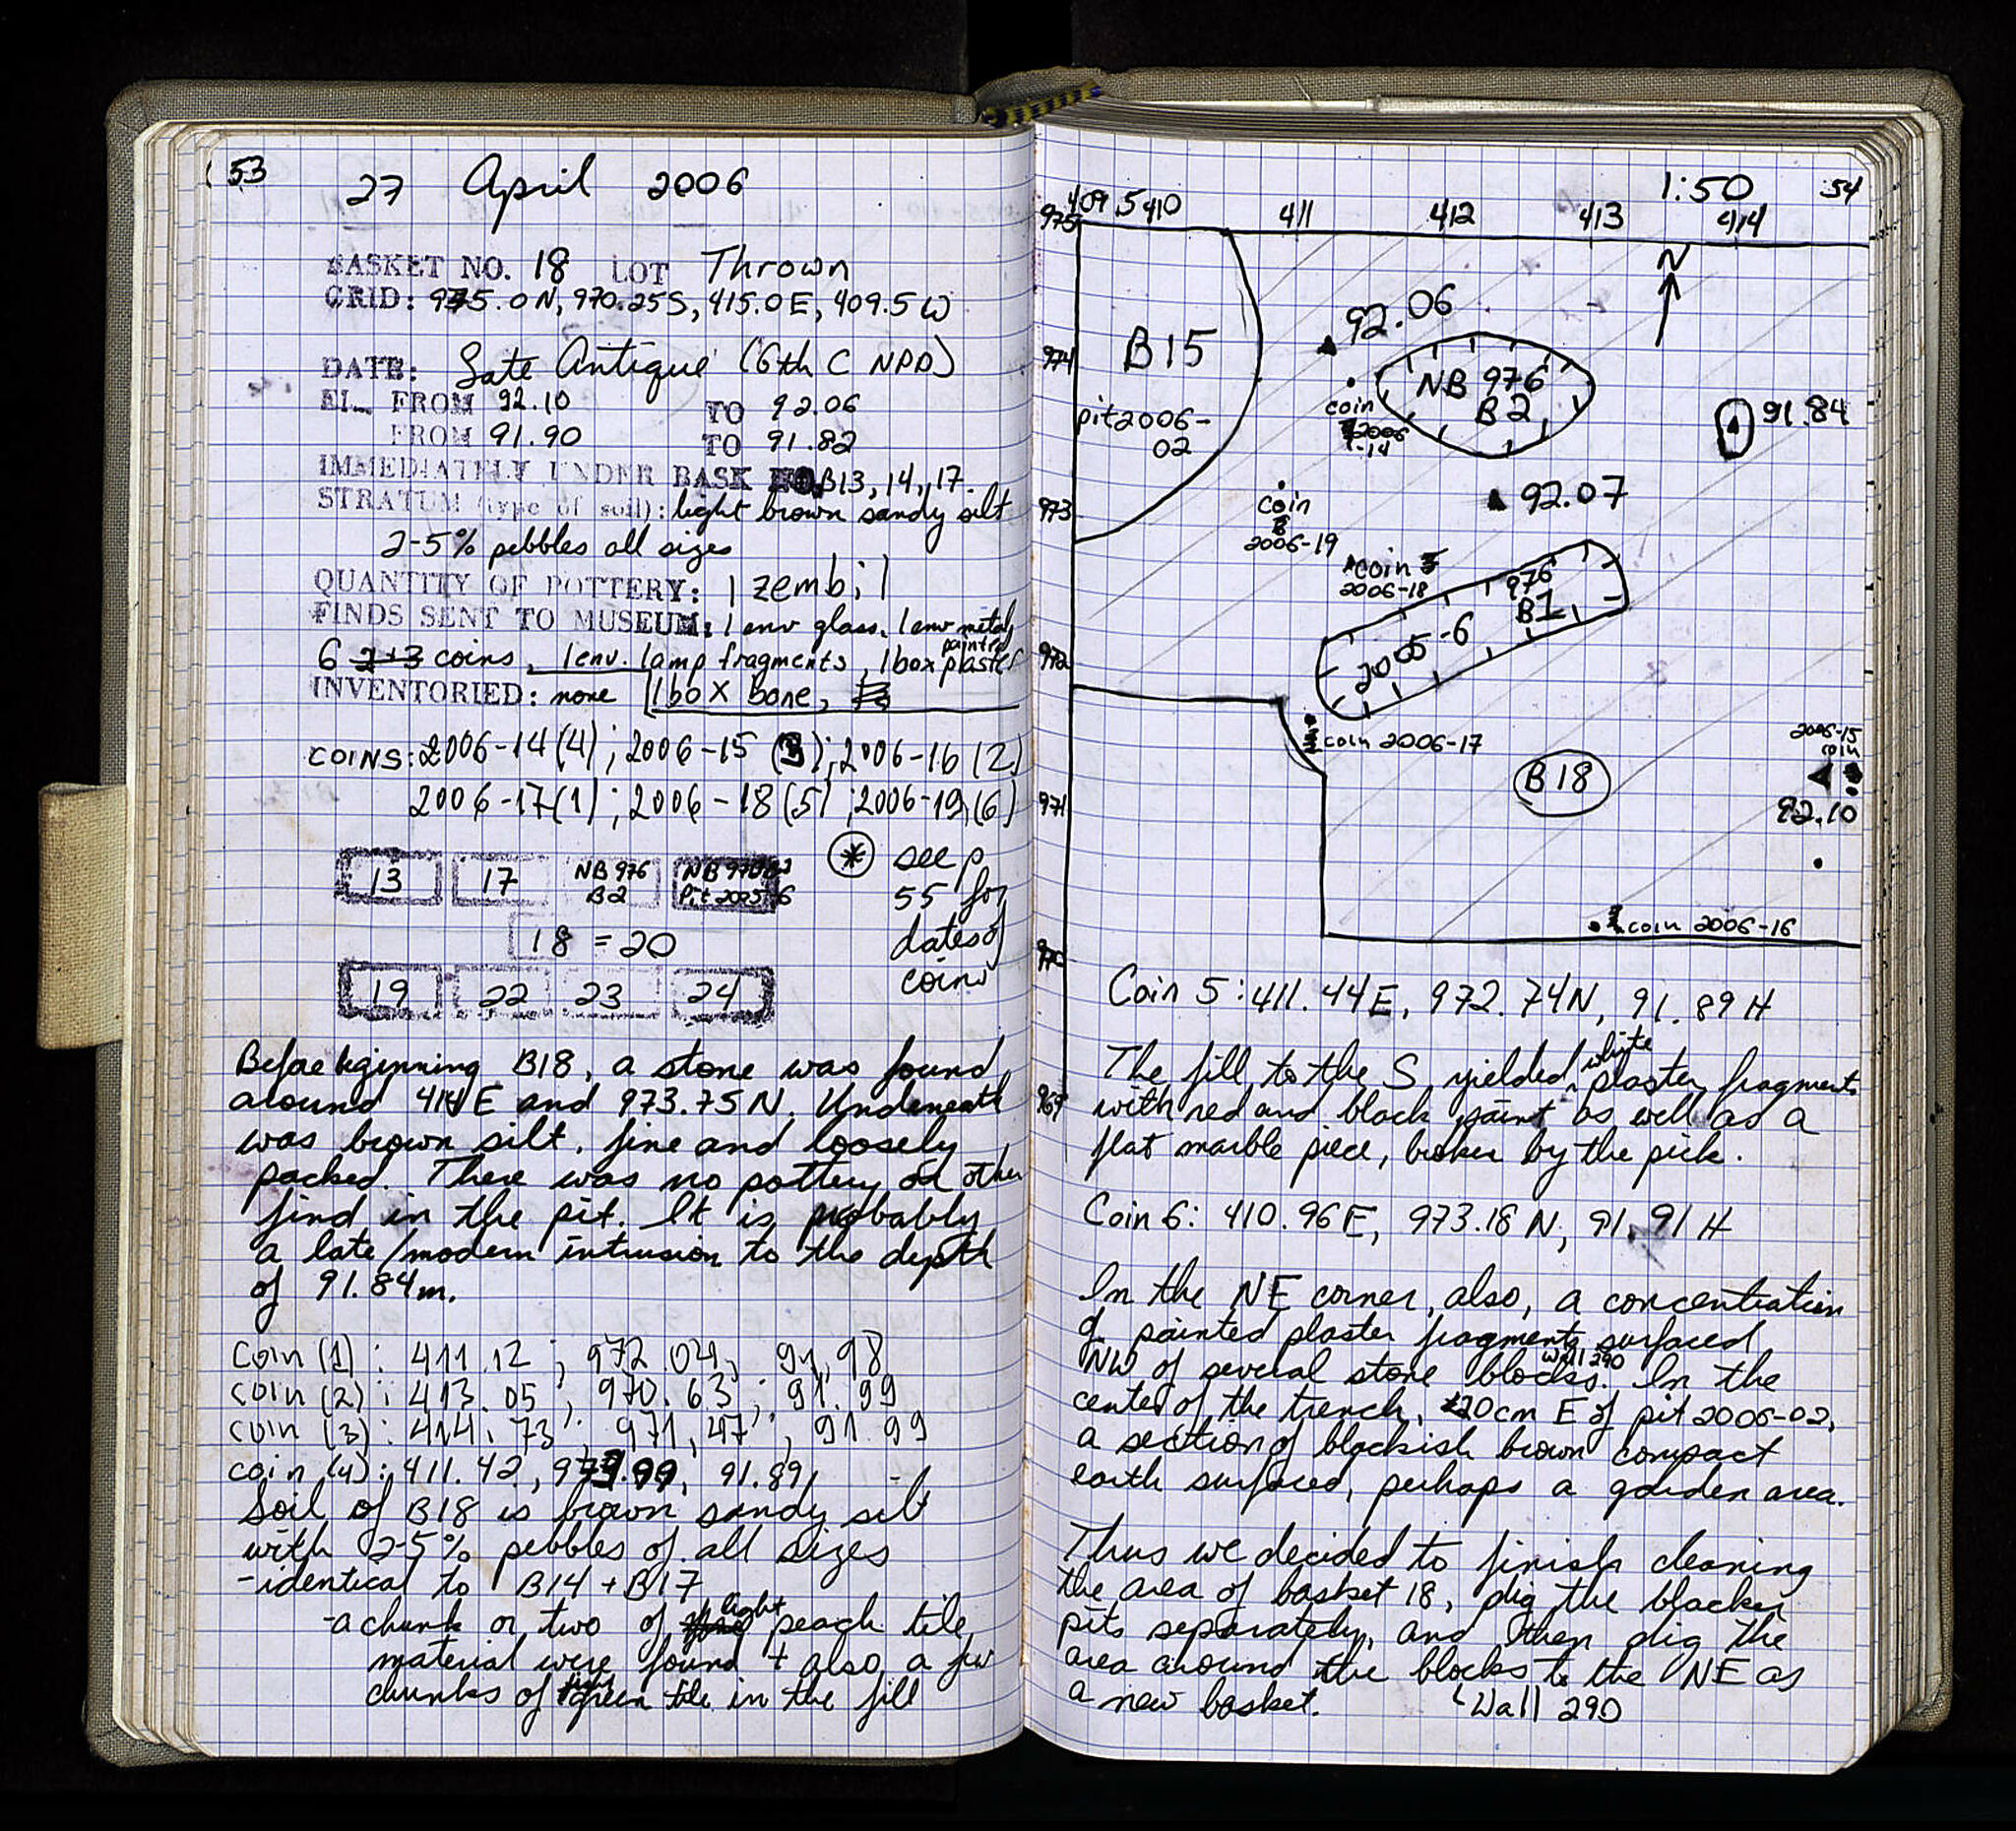 53
27 April 2006
BASKET NO. 18 LOT Thrown
GRID: 975.0N, 970.25S, 415.0E, 409.5W
DATE: Late Antique (6th C NPD)
EL. FROM 92.10 TO 92.06
FROM 91.90 TO 91.82
IMMEDIATELY UNDER BASK B13, 14, 17.
STRATUM (type of soil): light brown sandy silt
2-5% pebbles all sizes
QUANTITY OF POTTERY: 1 zembil
FINDS SENT TO MUSEUM: 1 env glass, 1 env metal,
6 coins, 1 env. lamp fragments, 1 box painted plaster
INVENTORIED: none 1 box bone,
COINS: 2006-14(4); 2006-15 (3); 2006-16 (2)
2006-17(1); 2006-18(5); 2006-19(6)
* see p
55 for
dates of
coins
13 17 NB 976 B2 Pit 2005-6
18 = 20
19 22 23 24
Before beginning B18, a stone was found
around 414E and 973.75N. Underneath
was brown silt, fine and loosely
packed. There was no pottery or other
find in the pit. It is probably
a late/modern intrusion to the depth
of 91.84m.
coin (1): 411.12; 972.04; 91.98
coin (2): 413.05; 970.63; 91.99
coin (3): 414.73; 971.47; 91.99
coin (4): 411.42, 91.89
Soil of B18 is brown sandy silt
with 2-5% pebbles of all sizes
-identical to B14 + B17
-a chunk or two of light peach tile
material were found + also a few
chunks of green tile in the fill
1:50 54
409.5 410 411 412 413 414
975
974
973
972
971
970
969
N
B15
pit 2006-
02
92.06
NB 976
B2
coin
2006
-14
91.84
92.07
coin
2006-19
coin
2006-18
976
B1
2005-6
coin 2006-17
B18
2006-15
coin
92.10
coin 2006-16
Coin 5: 411.44E, 972.74N, 91.89H
The fill to the S yielded white plaster fragments
with red and black paint as well as a
flat marble piece, broken by the pick.
Coin 6: 410.96E, 973.18N, 91.91H
In the NE corner, also, a concentration
of painted plaster fragments surfaced
NW of several stone blocks. Wall 290 In the
center of the trench, 20cm E of pit 2006-02,
a section of blackish brown compact
earth surfaced, perhaps a garden area.
Thus we decided to finish cleaning
the area of basket 18, dig the blacker
pits separately, and then dig the
area around the blocks to the NE as
a new basket. Wall 290